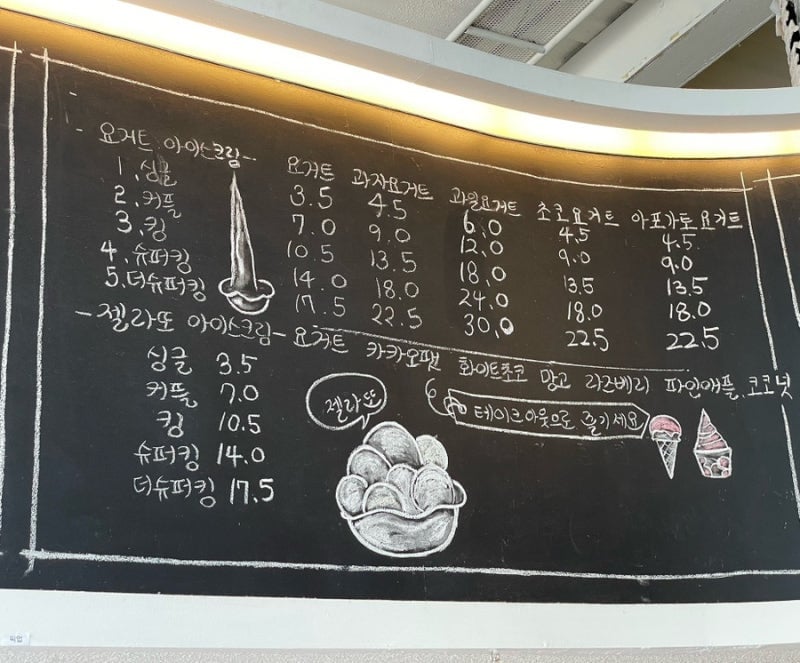 요거트 아이스크림 요거트 과자요거트 과일요거트 초코요거트 아포가토요거트
1. 싱글 3.5 4.5 6.0 4.5 4.5
2. 커플 7.0 9.0 12.0 9.0 9.0
3. 킹 10.5 13.5 18.0 13.5 13.5
4. 슈퍼킹 14.0 18.0 24.0 18.0 18.0
5. 더슈퍼킹 17.5 22.5 30.0 22.5 22.5
-젤라또 아이스크림- 요거트 카카오팬 화이트초코 망고 라즈베리 파인애플, 코코넛
싱글 3.5
커플 7.0
킹 10.5
슈퍼킹 14.0
더슈퍼킹 17.5
젤라또
테이크아웃으로 즐기세요
픽업